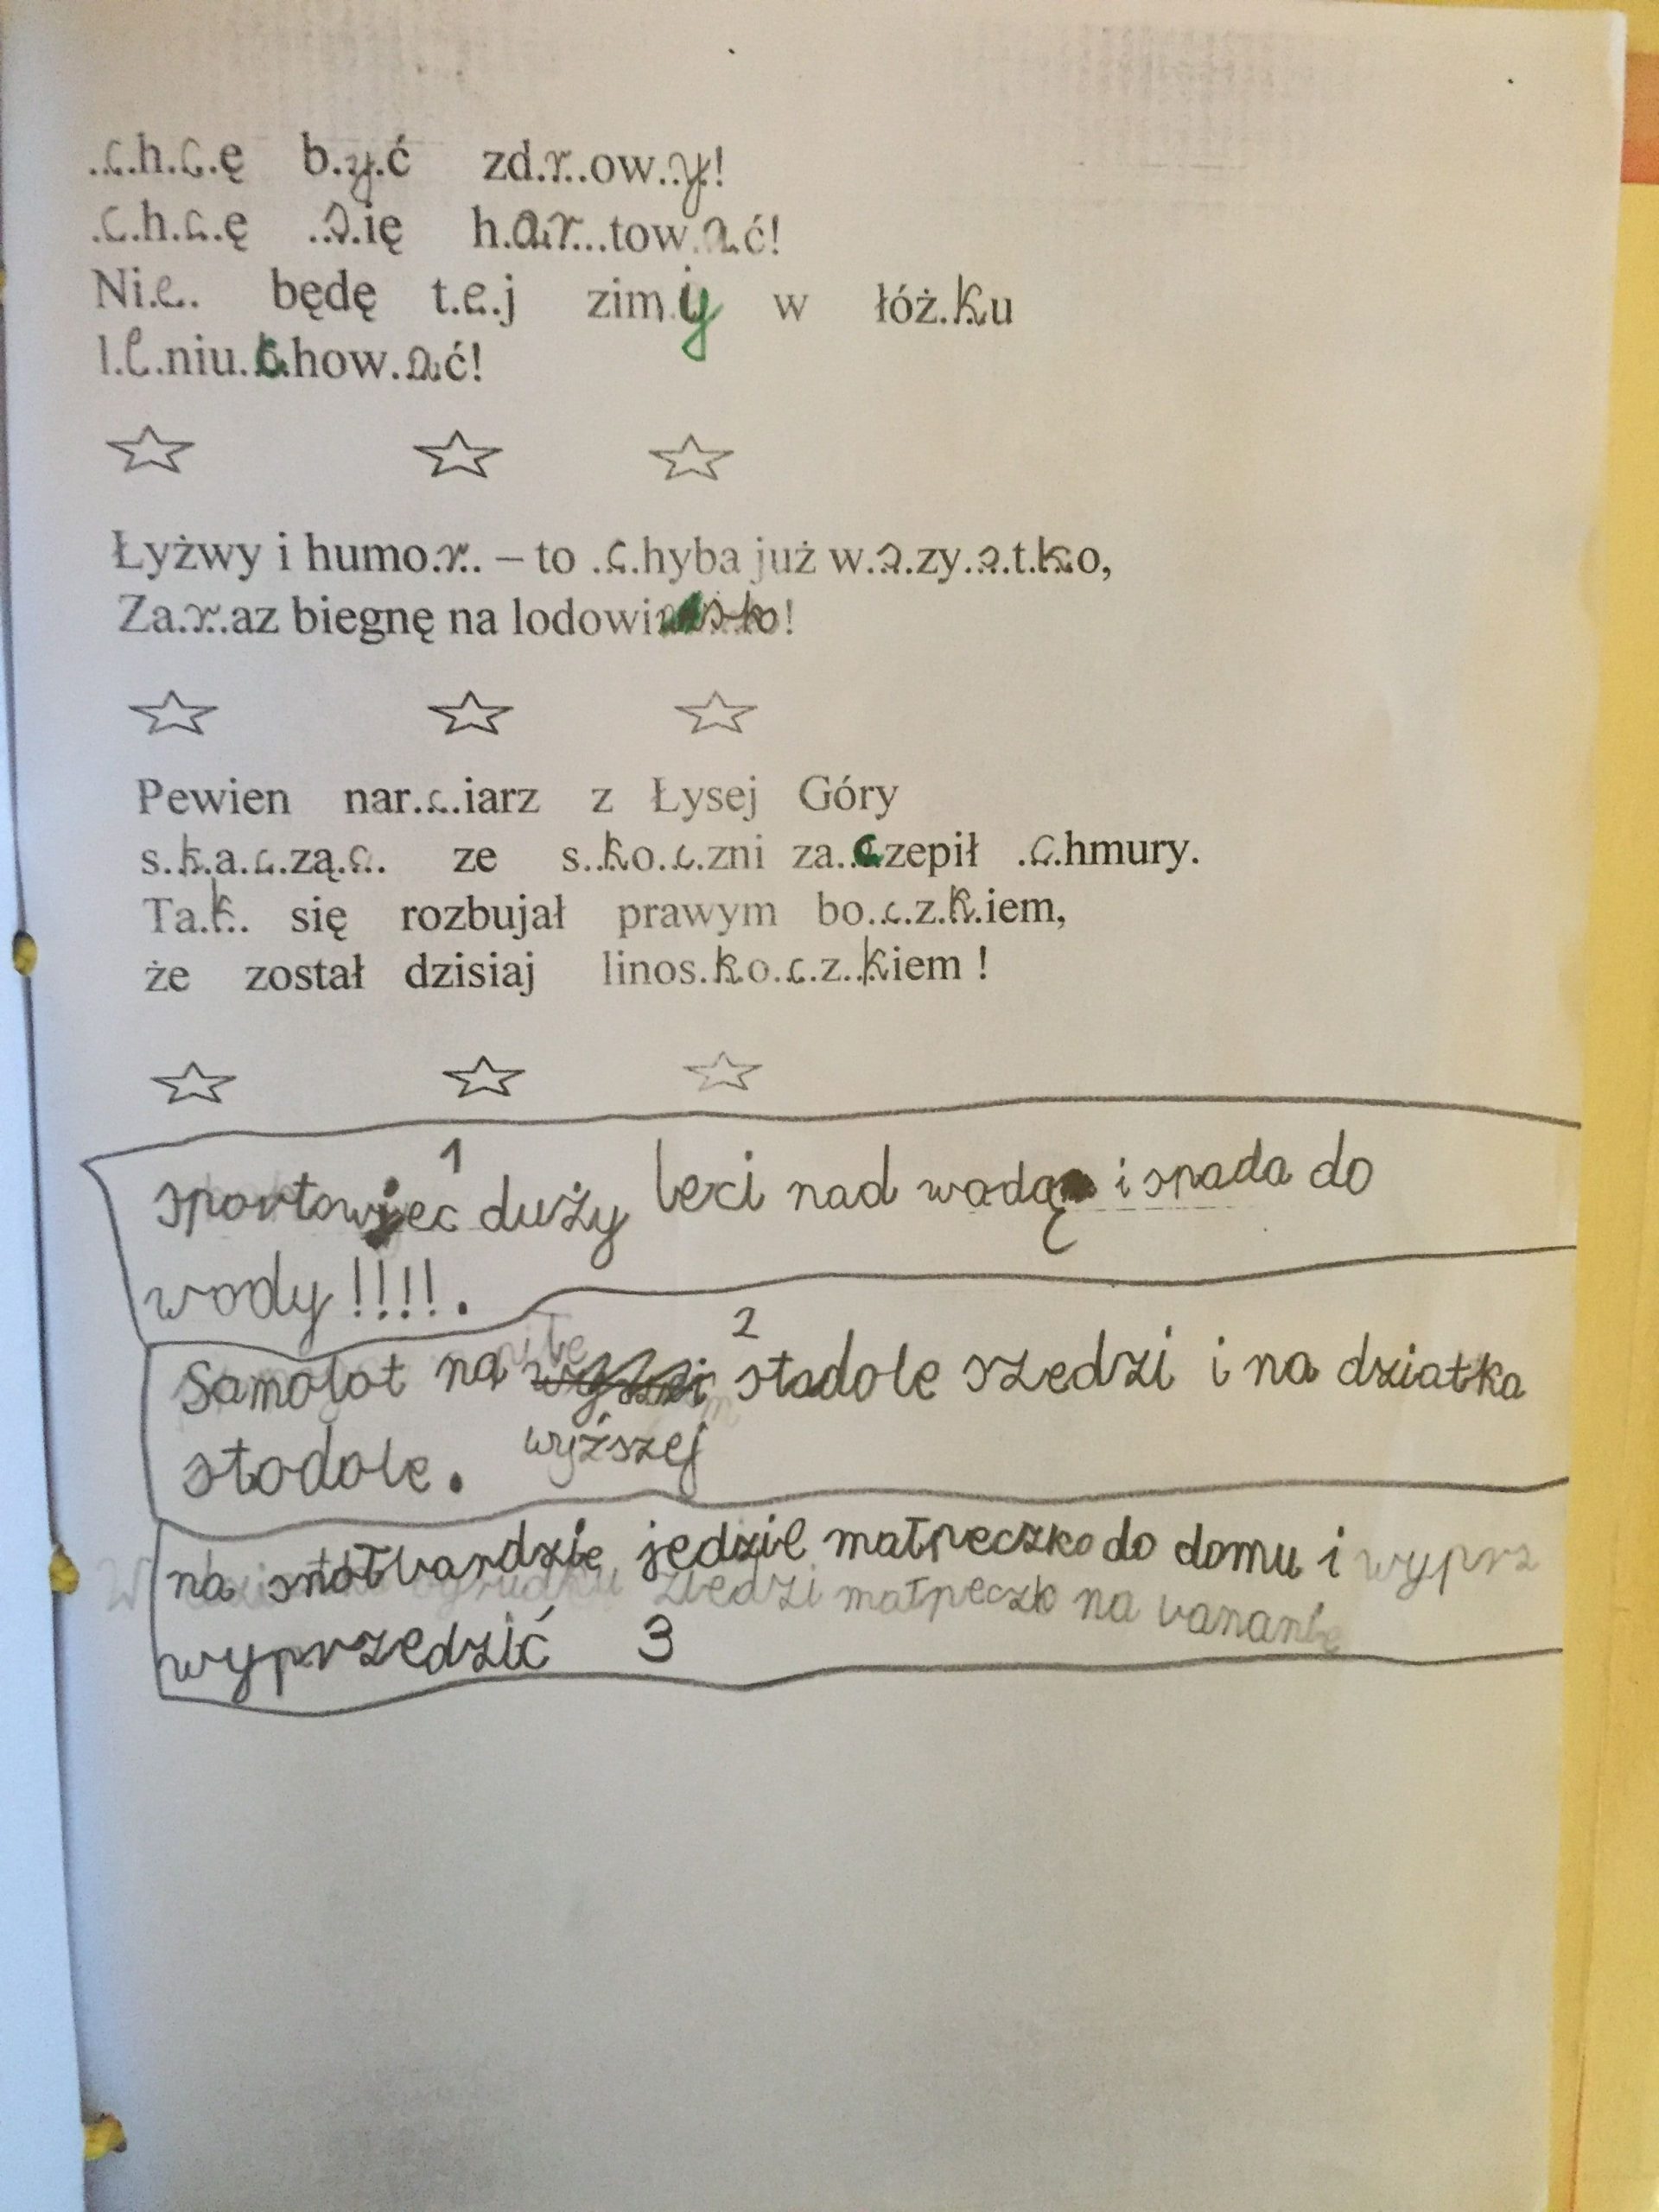 .c.h.c.ę b.y.ć zd.r..ow..y.!
.c.h.c.ę ..s.ię h.ar...tow.a.ć!
Ni.e.. będę t.e.j zim.y w łóż.k.u
l.e.niu.c.how.a.ć!
Łyżwy i humo.r.. – to .c.hyba już w.s.zy.s.t.k.o,
Za.r..az biegnę na lodowisko!
Pewien nar.c..iarz z Łysej Góry
s.k.a.c.zą.c. ze s..k.o.c.zni za..c.zepił .c.hmury.
Ta.k.. się rozbujał prawym bo..c.z.k.iem,
że został dzisiaj linos.k.o.c.z..kiem !
1
sportowiec duży leci nad wodą i spada do
wody !!!!.
2
Samolot na stodole szedzi i na dziatka
wyższej
stodole.
na jedzie małpeczko do domu i wyprz
ziedzi małpeczk na
wyprzedzić 3